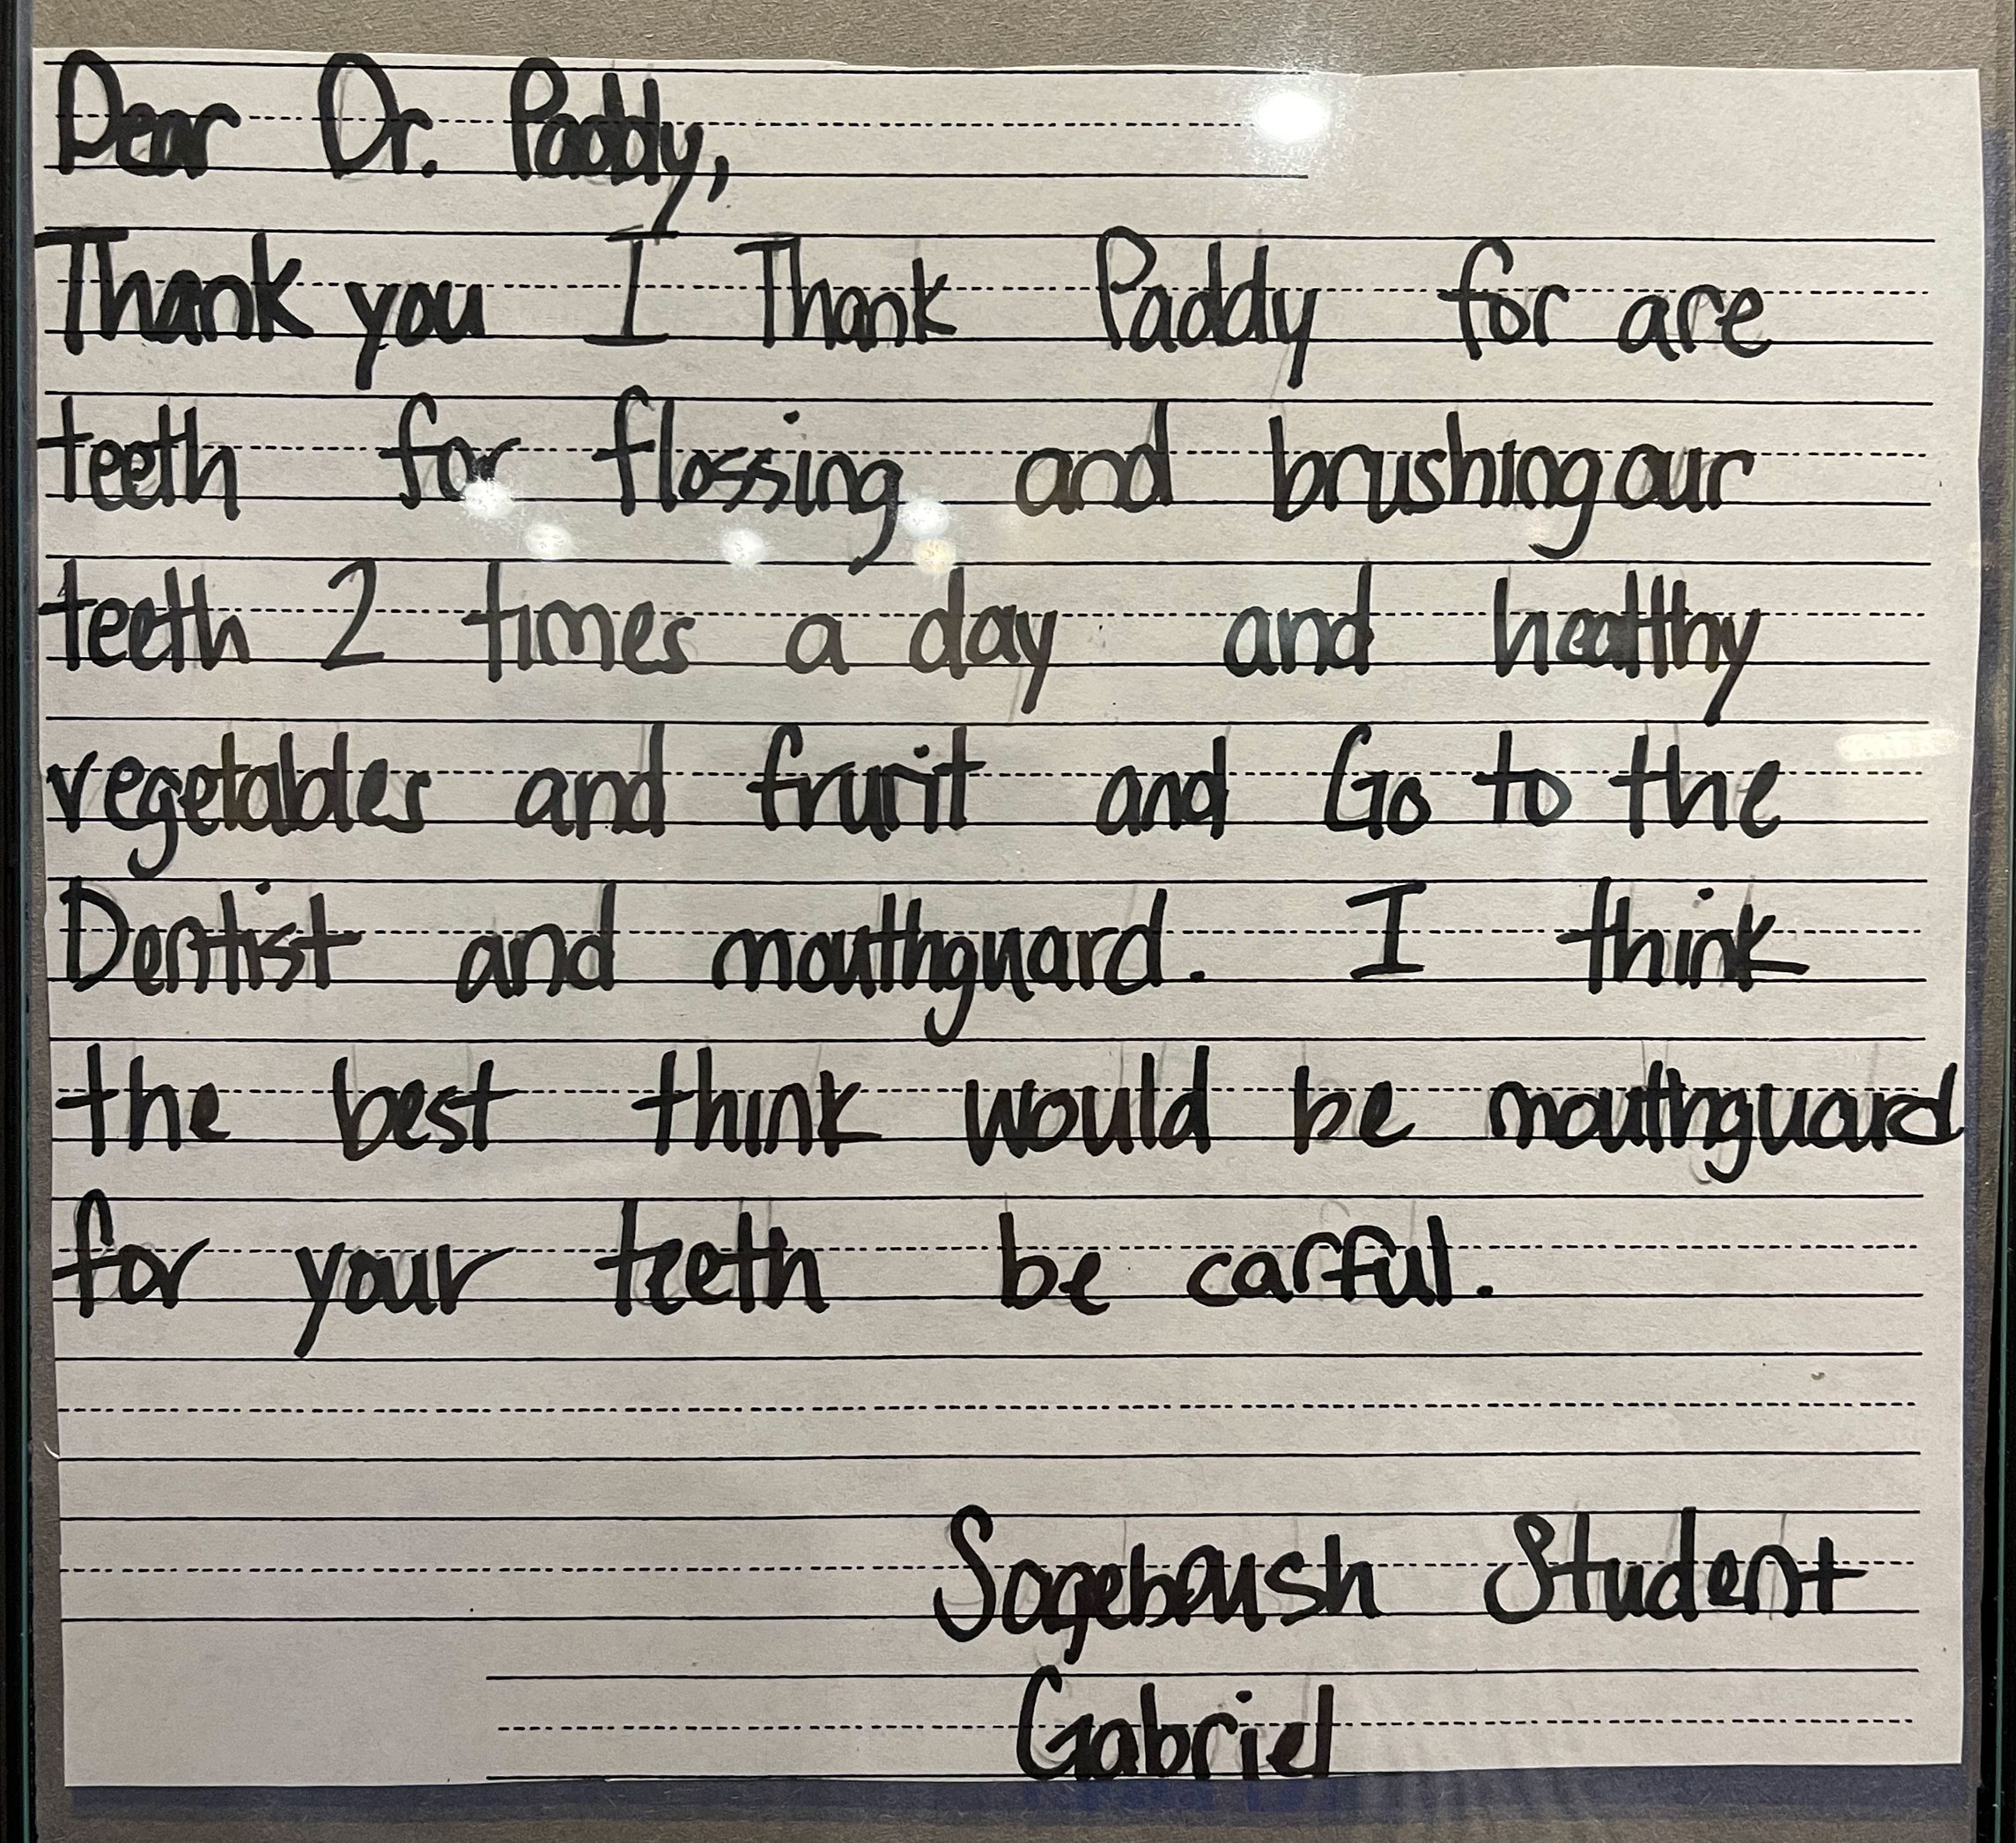 Dear Dr. Paddy,
Thank you I Thank Paddy for are
teeth for flossing and brushing our
teeth 2 times a day and healthy
vegetables and frurit and Go to the
Dentist and mouthguard. I think
the best think would be mouthguard
for your teeth be carful.
Sagebrush Student
Gabriel